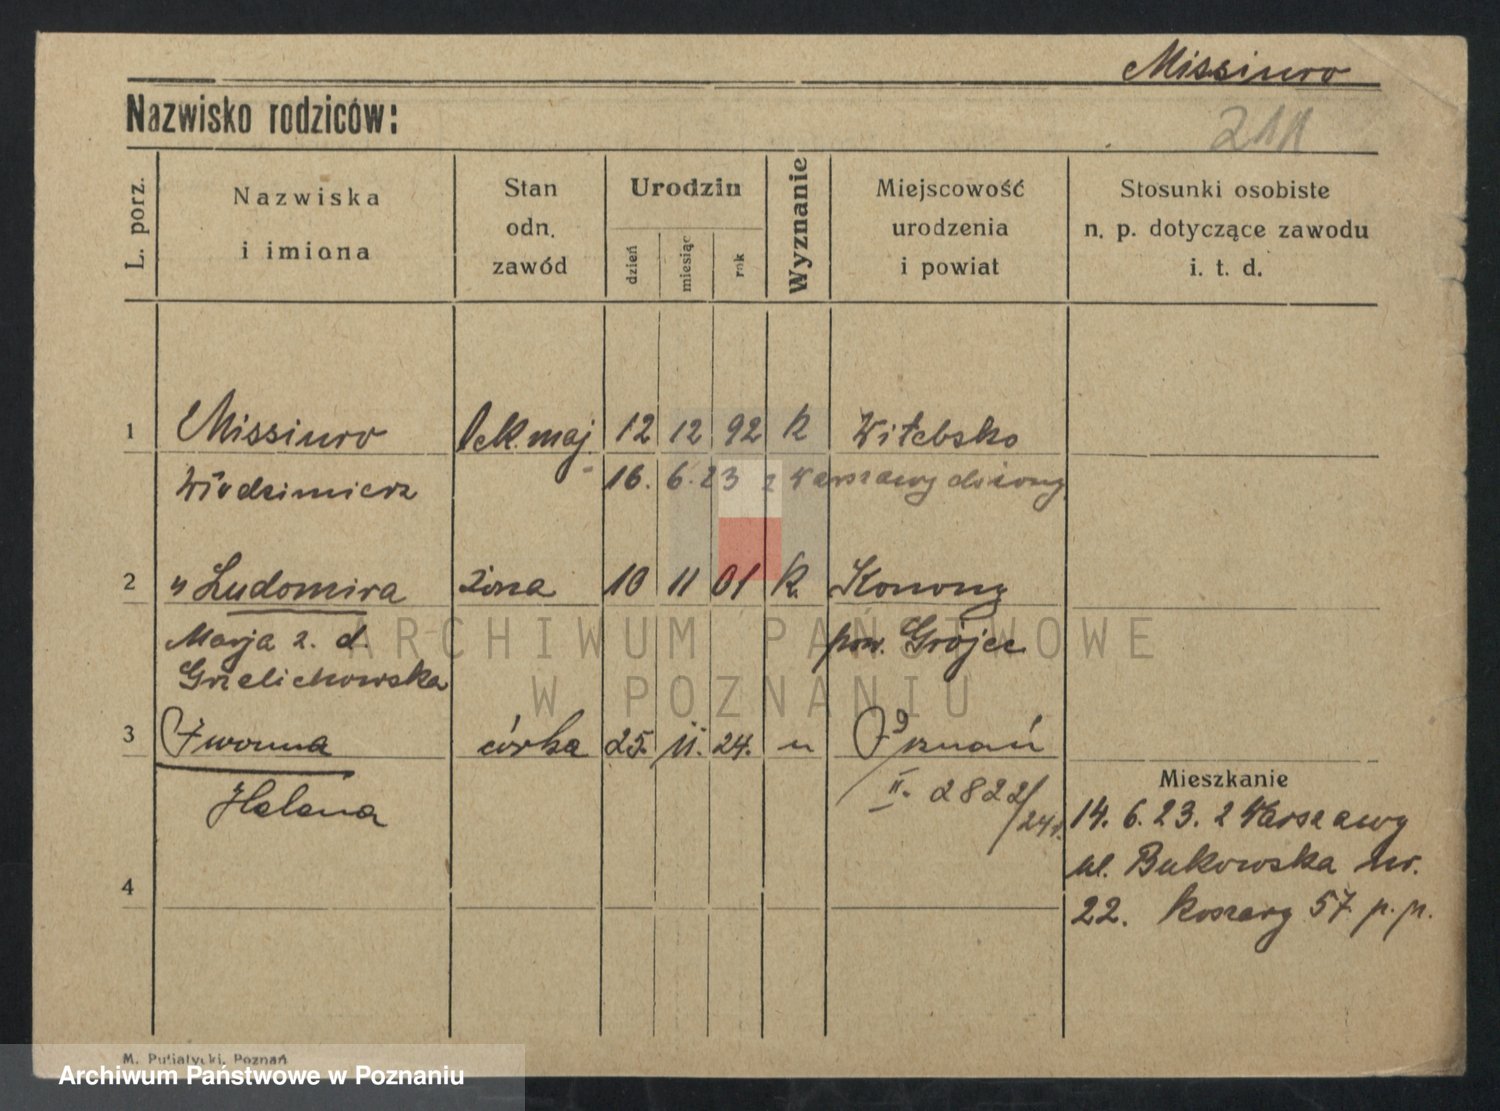 Missiuro
Nazwisko rodziców:
211
L. porz.
Nazwiska
i imiona
Stan
odn.
zawód
Urodzin
dzień
miesiąc
rok
Wyznanie
Miejscowość
urodzenia
i powiat
Stosunki osobiste
n. p. dotyczące zawodu
i. t. d.
1 Missiuro lek. maj. 12 12 92 k Witebsko
Włodzimierz 16. 6. 23 z Warszawy
2 " Ludomira żona 10 11 01 k. Konony
Marja z. d. pow. Grójec
Grzelichowska
3 Iwonna córka 25. 11. 24. " Poznań
Helena II. 2822/24r.
4
Mieszkanie
14. 6. 23. z Warszawy
ul. Bukowska nr.
22. Koszary 57 p. p.
M. Putiatycki, Poznań
ARCHIWUM PAŃSTWOWE
W POZNANIU
Archiwum Państwowe w Poznaniu